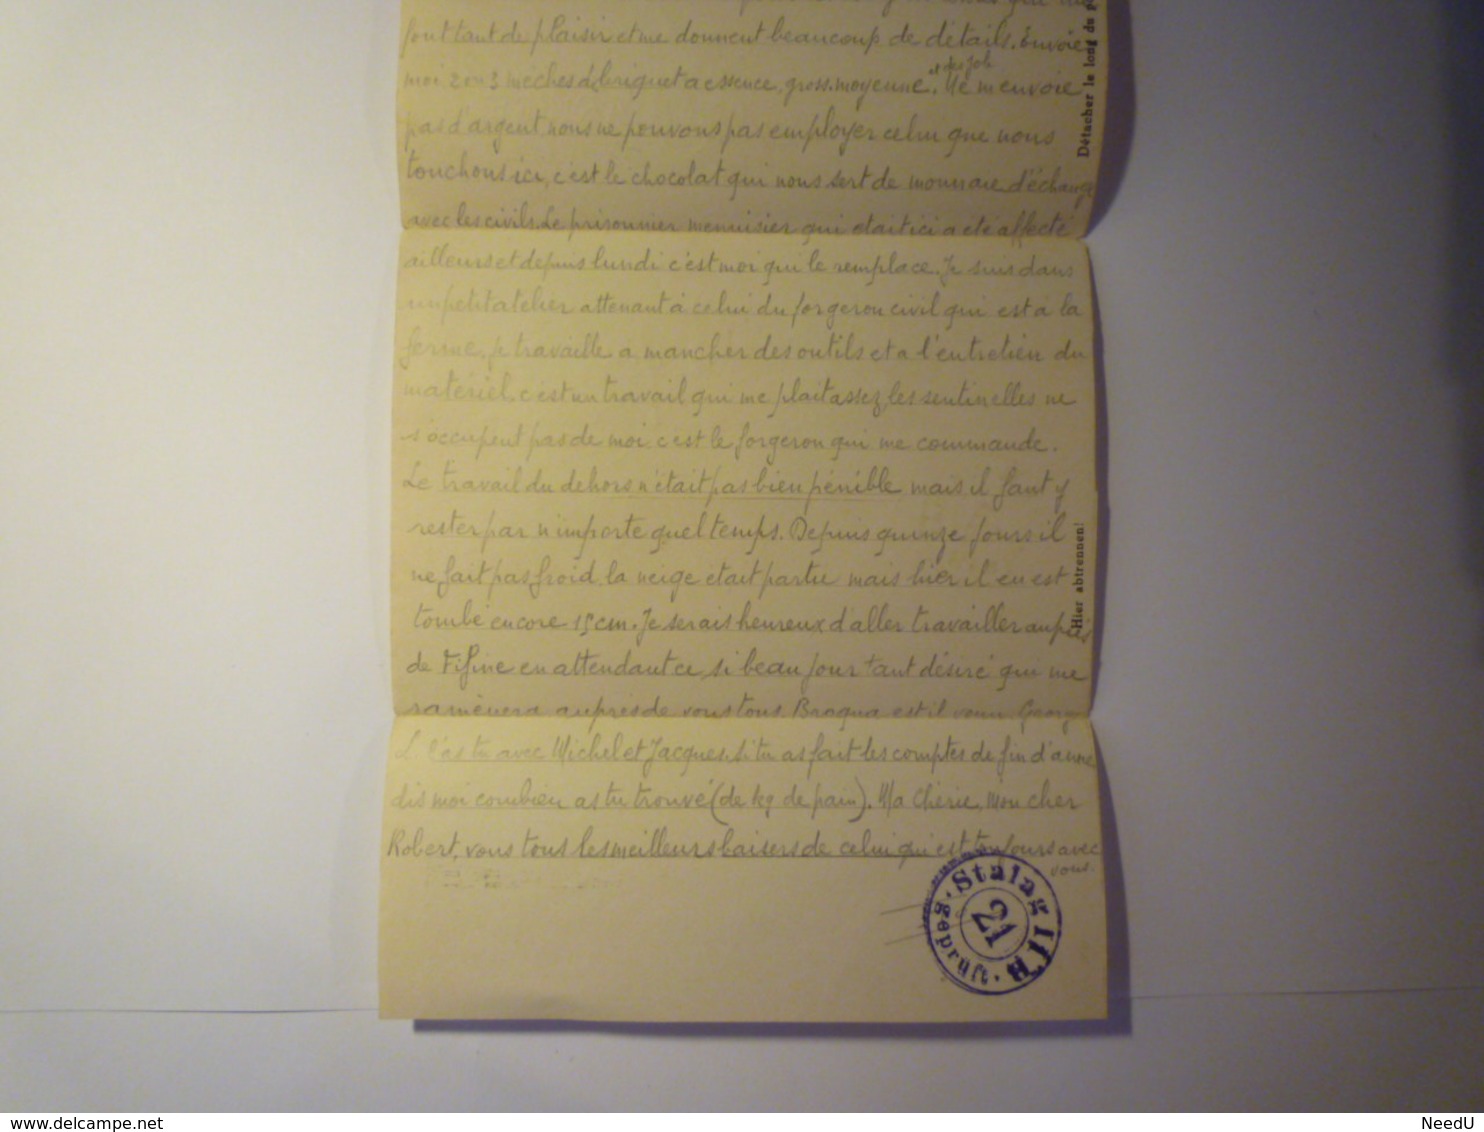 font tant de plaisir et me donnent beaucoup de détails. Envoie
moi 2 ou 3 mèches de briquet a essence, gross. moyenne. Ne m'envoie
pas d'argent nous ne pouvons pas employer celui que nous
touchons ici, c'est le chocolat qui nous sert de monnaie d'échange
avec les civils. Le prisonnier menuisier qui était ici a été affecté
ailleurs et depuis lundi c'est moi qui le remplace. Je suis dans
un petit atelier attenant à celui du forgeron civil qui est a la
ferme, je travaille a mancher des outils et a l'entretien du
matériel, c'est un travail qui me plait assez, les sentinelles ne
s'occupent pas de moi c'est le forgeron qui me commande.
Le travail du dehors n'était pas bien pénible mais il faut y
rester par n'importe quel temps. Depuis quinze jours il
ne fait pas froid la neige etait partie mais hier il en est
tombé encore 15 cm. Je serais heureux d'aller travailler auprès
de Fifine en attendant ce si beau jour tant désiré qui me
ramènera auprès de vous tous. Braqua est il venu Georg
L. l'as tu avec Michel et Jacques. si tu as fait les comptes de fin d'anne
dis moi combien as tu trouvé (de kg de pain). Ma Cherie, Mon cher
Robert, vous tous les meilleurs baisers de celui qui est toujours avec
vous.
Détacher le long du
Hier abtrennen!
Stalag II B
12
Geprüft
www.delcampe.net
NeedU